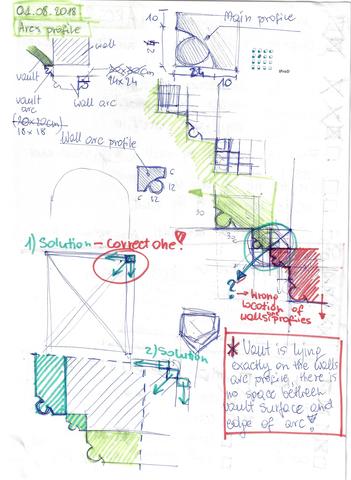 01.08.2018
Arcs profile
10
Main profile
24
24
10
wall
vault
wall arc
24 x 24
vault
arc
(20x20cm)
18 x 18
Wall arc profile
6
12
6
12
30
32
1) Solution - Correct one!
?
→ Wrong
location of
walls profiles
2) Solution
* Vault is lying
exactly on the walls
arc profile, there is
no space between
vault surface and
edge of arc!